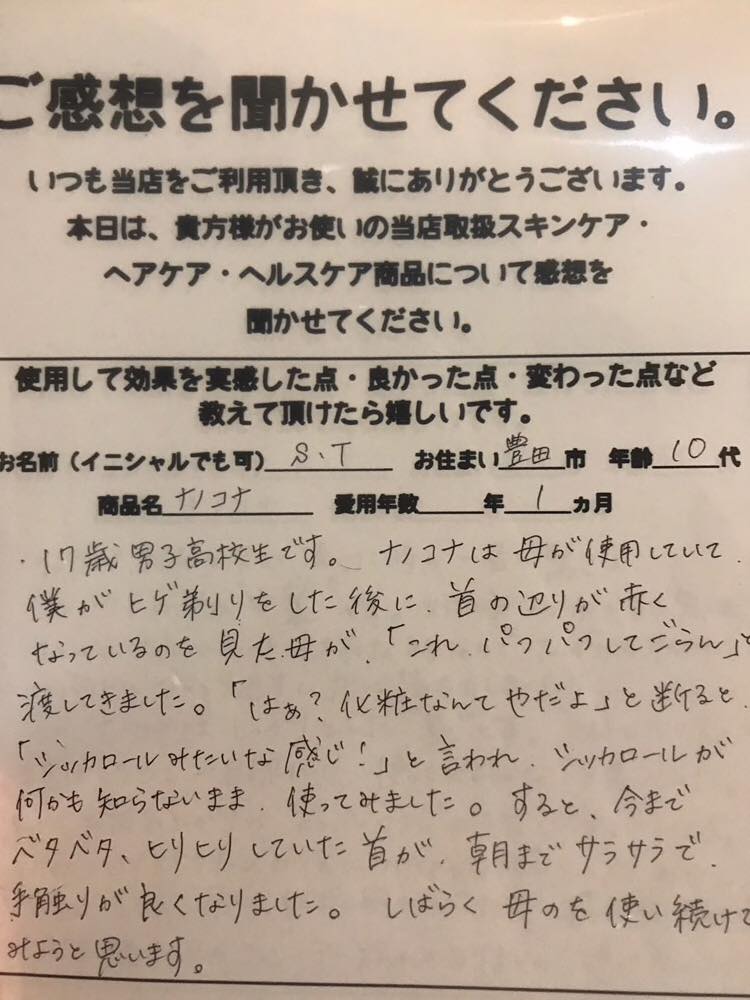 ご感想を聞かせてください。
いつも当店をご利用頂き、誠にありがとうございます。
本日は、貴方様がお使いの当店取扱スキンケア・
ヘアケア・ヘルスケア商品について感想を
聞かせてください。
使用して効果を実感した点・良かった点・変わった点など
教えて頂けたら嬉しいです。
お名前（イニシャルでも可） S.T お住まい 豊田 市 年齢 10 代
商品名 ナノコナ 愛用年数 年 1 ヵ月
・17歳男子高校生です。ナノコナは母が使用していて、
僕がヒゲ剃りをした後に、首の辺りが赤く
なっているのを見た母が、「これ、パフパフしてごらん」と
渡してきました。「はぁ？化粧なんてやだよ」と断ると、
「シッカロールみたいな感じ！」と言われ、シッカロールが
何かも知らないまま、使ってみました。すると、今まで
ベタベタ、ヒリヒリしていた首が、朝までサラサラで、
手触りが良くなりました。しばらく母のを使い続けて
みようと思います。